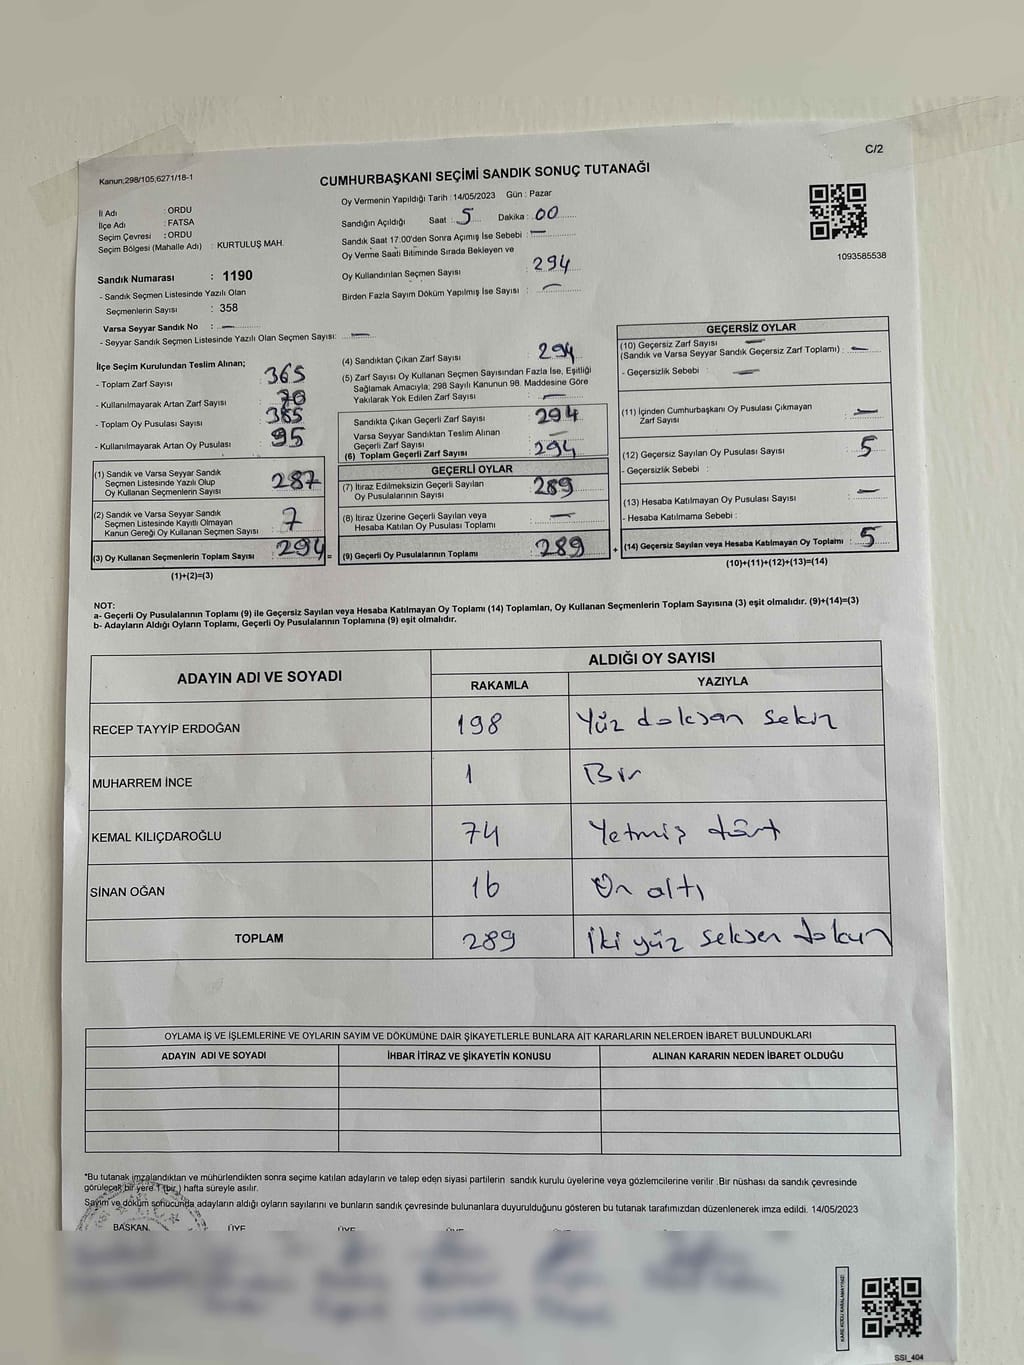 C/2
Kanun;298/105,6271/18-1
CUMHURBAŞKANI SEÇİMİ SANDIK SONUÇ TUTANAĞI
Oy Vermenin Yapıldığı Tarih : 14/05/2023 Gün : Pazar
İl Adı : ORDU
İlçe Adı : FATSA
Seçim Çevresi : ORDU
Seçim Bölgesi (Mahalle Adı) : KURTULUŞ MAH.
Sandığın Açıldığı Saat : 5 Dakika : 00
Sandık Saat 17:00'den Sonra Açımış İse Sebebi : —
Oy Verme Saati Bitiminde Sırada Bekleyen ve
Oy Kullandırılan Seçmen Sayısı : 294
Birden Fazla Sayım Döküm Yapılmış İse Sayısı : —
1093585538
Sandık Numarası : 1190
- Sandık Seçmen Listesinde Yazılı Olan
Seçmenlerin Sayısı : 358
Varsa Seyyar Sandık No : —
- Seyyar Sandık Seçmen Listesinde Yazılı Olan Seçmen Sayısı: —
İlçe Seçim Kurulundan Teslim Alınan;
- Toplam Zarf Sayısı : 365
- Kullanılmayarak Artan Zarf Sayısı : 70
- Toplam Oy Pusulası Sayısı : 385
- Kullanılmayarak Artan Oy Pusulası : 95
(1) Sandık ve Varsa Seyyar Sandık
Seçmen Listesinde Yazılı Olup
Oy Kullanan Seçmenlerin Sayısı : 287
(2) Sandık ve Varsa Seyyar Sandık
Seçmen Listesinde Kayıtlı Olmayan
Kanun Gereği Oy Kullanan Seçmen Sayısı : 7
(3) Oy Kullanan Seçmenlerin Toplam Sayısı : 294 =
(1)+(2)=(3)
(4) Sandıktan Çıkan Zarf Sayısı : 294
(5) Zarf Sayısı Oy Kullanan Seçmen Sayısından Fazla İse, Eşitliği
Sağlamak Amacıyla; 298 Sayılı Kanunun 98. Maddesine Göre
Yakılarak Yok Edilen Zarf Sayısı : —
Sandıkta Çıkan Geçerli Zarf Sayısı : 294
Varsa Seyyar Sandıktan Teslim Alınan
Geçerli Zarf Sayısı : —
(6) Toplam Geçerli Zarf Sayısı : 294
GEÇERLİ OYLAR
(7) İtiraz Edilmeksizin Geçerli Sayılan
Oy Pusulalarının Sayısı : 289
(8) İtiraz Üzerine Geçerli Sayılan veya
Hesaba Katılan Oy Pusulası Toplamı : —
(9) Geçerli Oy Pusulalarının Toplamı : 289 +
GEÇERSİZ OYLAR
(10) Geçersiz Zarf Sayısı —
(Sandık ve Varsa Seyyar Sandık Geçersiz Zarf Toplamı) : —
- Geçersizlik Sebebi : —
(11) İçinden Cumhurbaşkanı Oy Pusulası Çıkmayan
Zarf Sayısı : —
(12) Geçersiz Sayılan Oy Pusulası Sayısı : 5
- Geçersizlik Sebebi :
(13) Hesaba Katılmayan Oy Pusulası Sayısı : —
- Hesaba Katılmama Sebebi :
(14) Geçersiz Sayılan veya Hesaba Katılmayan Oy Toplamı : 5
(10)+(11)+(12)+(13)=(14)
NOT:
a- Geçerli Oy Pusulalarının Toplamı (9) ile Geçersiz Sayılan veya Hesaba Katılmayan Oy Toplamı (14) Toplamları, Oy Kullanan Seçmenlerin Toplam Sayısına (3) eşit olmalıdır. (9)+(14)=(3)
b- Adayların Aldığı Oyların Toplamı, Geçerli Oy Pusulalarının Toplamına (9) eşit olmalıdır.
ADAYIN ADI VE SOYADI ALDIĞI OY SAYISI
RAKAMLA YAZIYLA
RECEP TAYYİP ERDOĞAN 198 Yüz doksan sekiz
MUHARREM İNCE 1 Bir
KEMAL KILIÇDAROĞLU 74 Yetmiş dört
SİNAN OĞAN 16 On altı
TOPLAM 289 İki yüz seksen dokuz
OYLAMA İŞ VE İŞLEMLERİNE VE OYLARIN SAYIM VE DÖKÜMÜNE DAİR ŞİKAYETLERLE BUNLARA AİT KARARLARIN NELERDEN İBARET BULUNDUKLARI
ADAYIN ADI VE SOYADI İHBAR İTİRAZ VE ŞİKAYETİN KONUSU ALINAN KARARIN NEDEN İBARET OLDUĞU
*Bu tutanak imzalandıktan ve mühürlendikten sonra seçime katılan adayların ve talep eden siyasi partilerin sandık kurulu üyelerine veya gözlemcilerine verilir .Bir nüshası da sandık çevresinde
görülecek bir yere 1 (bir ) hafta süreyle asılır.
Sayım ve döküm sonucunda adayların aldığı oyların sayılarını ve bunların sandık çevresinde bulunanlara duyurulduğunu gösteren bu tutanak tarafımızdan düzenlenerek imza edildi. 14/05/2023
BAŞKAN ÜYE ÜYE ÜYE ÜYE ÜYE
KARE KODU KARALAMAYINIZ!
SSI_404